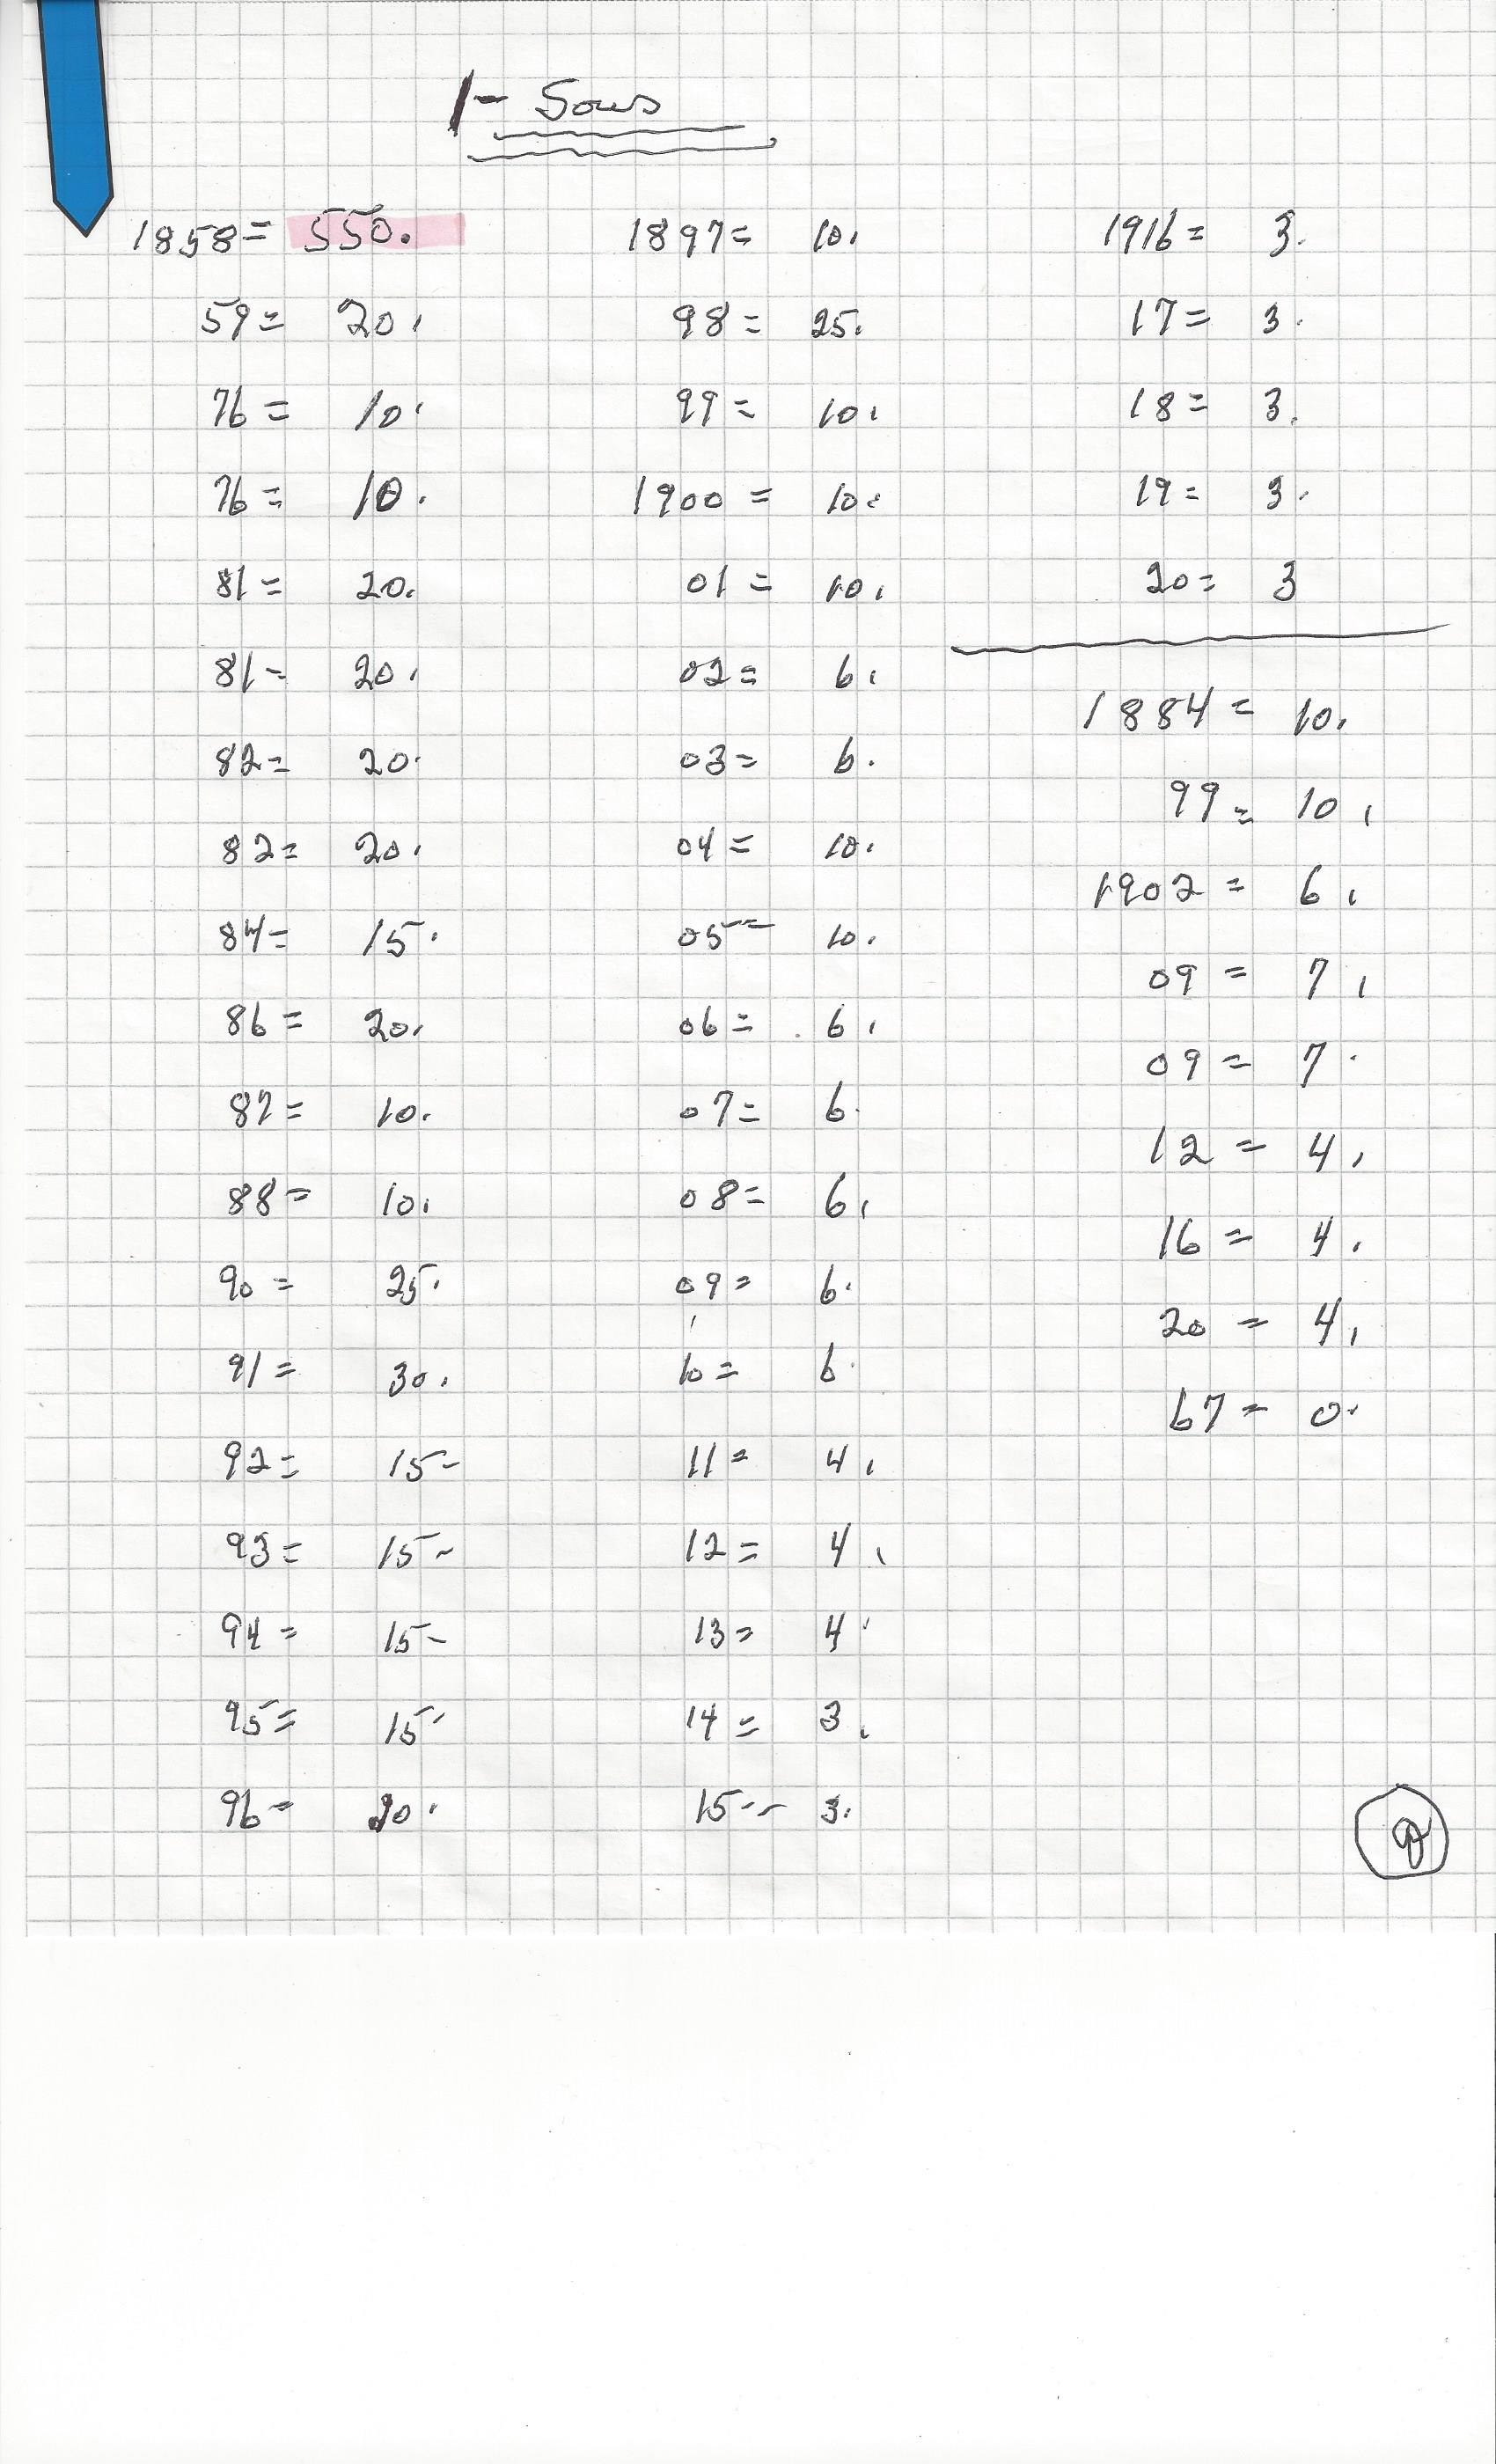 1- Sous
1858= 550.
59= 20.
76= 10.
76= 10.
81= 20.
81= 20.
82= 20.
82= 20.
84= 15.
86= 20.
87= 10.
88= 10.
90= 25.
91= 30.
92= 15-
93= 15-
94= 15-
95= 15-
96= 20.
1897= 10.
98= 25.
99= 10.
1900= 10.
01= 10.
02= 6.
03= 6.
04= 10.
05= 10.
06= 6.
07= 6.
08= 6.
09= 6.
10= 6.
11= 4.
12= 4.
13= 4.
14= 3.
15-- 3.
1916= 3.
17= 3.
18= 3.
19= 3.
20= 3
1884= 10.
99= 10.
1902= 6.
09= 7.
09= 7.
12= 4.
16= 4.
20= 4.
67= 0.